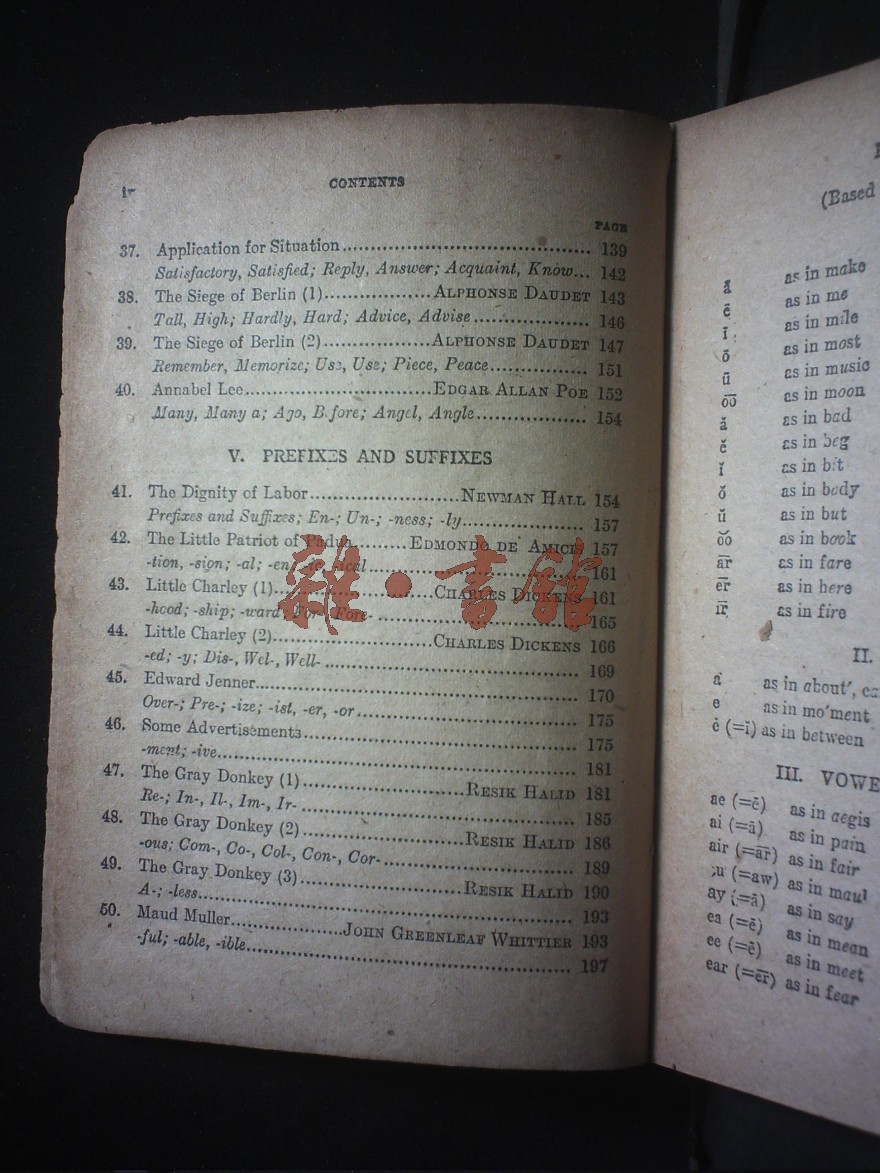 CONTENTS
PAGE
37. Application for Situation 139
Satisfactory, Satisfied; Reply, Answer; Acquaint, Know... 142
38. The Siege of Berlin (1) ALPHONSE DAUDET 143
Tall, High; Hardly, Hard; Advice, Advise 146
39. The Siege of Berlin (2) ALPHONSE DAUDET 147
Remember, Memorize; Use, Use; Piece, Peace 151
40. Annabel Lee EDGAR ALLAN POE 152
Many, Many a; Ago, Before; Angel, Angle 154
V. PREFIXES AND SUFFIXES
41. The Dignity of Labor NEWMAN HALL 154
Prefixes and Suffixes; En-; Un-; -ness; -ly 157
42. The Little Patriot of Padua EDMONDO DE AMICIS 157
-tion, -sion; -al; -en; -ic, -ical 161
43. Little Charley (1) CHARLES DICKENS 161
-hood; -ship; -ward; For-, Fore- 165
44. Little Charley (2) CHARLES DICKENS 166
-ed; -y; Dis-, Wel-, Well- 169
45. Edward Jenner 170
Over-; Pre-; -ize; -ist, -er, -or 175
46. Some Advertisements 175
-ment; -ive 181
47. The Gray Donkey (1) RESIK HALID 181
Re-; In-, Il-, Im-, Ir- 185
48. The Gray Donkey (2) RESIK HALID 186
-ous; Com-, Co-, Col-, Con-, Cor- 189
49. The Gray Donkey (3) RESIK HALID 190
A-; -less 193
50. Maud Muller JOHN GREENLEAF WHITTIER 193
-ful; -able, -ible 197
雜·書館
(Based
ā as in make
ē as in me
ī as in mile
ō as in most
ū as in music
o͞o as in moon
ă as in bad
ĕ as in beg
ĭ as in bit
ŏ as in body
ŭ as in but
o͝o as in book
ār as in fare
ēr as in here
īr as in fire
II.
a as in about',
e as in mo'ment
ė (=ĭ) as in between
III. VOWE
ae (=ē) as in aegis
ai (=ā) as in pain
air (=ār) as in fair
au (=aw) as in maul
ay (=ā) as in say
ea (=ē) as in mean
ee (=ē) as in meet
ear (=ēr) as in fear